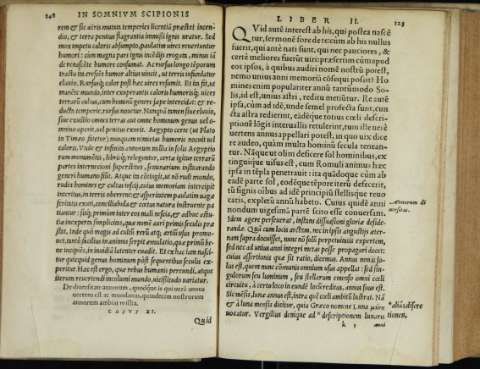 248 IN SOMNIVM SCIPIONIS
rem & sic aëris manus temperies licentia præstet incen-
dio, & terra penitus flagrantia immissi ignis uratur. Sed
mox impetu caloris absumpto, paulatim vires revertuntur
humori: cum magna pars ignis incendiis erogata, minus iã
de renascente humore consumat. Ac rursus longo temporum
tractu ita crescens humor altius vincit, ut terris infundatur
eluvio. Rursusq; calor post hæc vires resumit. Et ita fit, ut
manente mundo, inter exuperantis caloris humorisq; vices
terrarũ cultus, cum hominũ genere sæpe intercidat: & re-
ducta temperie, rursus novetur. Nunquã tamen seu eluvio,
seu exustio omnes terras aut omne hominum genus vel o-
mnino operit, vel penitus exurit. Aegypto certe (ut Plato
in Timæo fatetur) nunquam nimietas humoris nocuit vel
caloris. Vnde & infinita annorum millia in solis Aegyptio
rum monumentis, libriśq; releguntur. certæ igitur terrarũ
partes internecioni superstites, seminarium instaurando
generi humano fiunt. Atque ita contingit, ut nõ rudi mundo,
rudes homines & cultus inscii, cuius memoriam intercepit
interitus, in terris oberrent: & asperitatem paulatim vagæ
feritatis exuti, conciliabula & cœtus natura instituente pa
tiantur: sitq; primum inter eos mali nescia, & adhuc astu-
tiæ inexperta simplicitas, quæ nomẽ auri primis seculis præ
stat. Inde quò magis ad cultũ rerũ atq; artiũ usus promo-
vet, tantò facilius in animos serpit æmulatio, quæ primũ be-
ne incipiens, in invidiã latenter evadit. Et ex hac iam nasci-
tur quicquid genus hominum post sequentibus seculis ex-
peritur. Hæc est ergò, quæ rebus humanis pereundi, atque
iterum revertendi incolumi mundo, vicissitudo variatur.
De diversitate annorum, quodque is qui verè annus
vertens est ac mundanus, quindecim nostrorum
annorum ambiat millia.
CAPVT XI.
Quid
LIBER II. 129
QVid autẽ interest ab his, qui postea nascẽ
tur, sermonẽ fore de te: cùm ab his nullus
fuerit, qui antè nati sunt, qui nec pauciores, &
certè meliores fuerũt viri: præsertim cũ apud
eos ipsos, à quibus audiri nomẽ nostrũ potest,
nemo unius anni memoriã cõsequi possit? Ho
mines enim populariter annũ tantũmodo So-
lis, id est, unius astri, reditu metiũtur. Re autẽ
ipsa, cùm ad idẽ, unde semel profecta sunt, cun
cta astra redierint, eadẽque totius cœli descri-
ptionẽ lõgis intervallis retulerint, tum ille verè
vertens annus appellari potest, in quo vix dice
re audeo, quàm multa hominũ secula tenean-
tur. Nãque ut olim deficere sol hominibus, ex
tinguique visus est, cum Romuli animus hæc
ipsa in tẽpla penetravit: ita quãdoque cùm ab
eadẽ parte sol, eodẽque tẽpore iterũ defecerit,
tũ signis oībus ad idẽ principiũ stellisque revo
catis, expletũ annũ habeto. Cuius quidẽ anni
nondum vigesimã partẽ scito esse conversam.
Idem agere perseverat, instans dissuasioni gloriæ deside-
randæ. Quã cum locis arctam, nec in ipsis angustiis æter-
nam supra docuisset, nunc nõ solũ perpetuitatis expertem,
sed nec ad unius anni integri metas posse propagari docet:
cuius assertionis quæ sit ratio, dicemus. Annus non is so-
lus est, quem nunc cõmunis omnium usus appellat: sed sin-
gulorum seu luminum, seu stellarum emenso omni cœli
circuitu, à certo loco in eundẽ locũ reditus, annus suus est.
Sic mẽsis, Lunæ annus est, intra quẽ cœli ambitũ lustrat. Nã
& à luna mensis dicitur, quia Græco nomine Luna μήνη
vocatur. Vergilius denique ad* descriptionem lunaris
k 5 anni
Annorum di
versitas.
*aliàs disere
tionem,